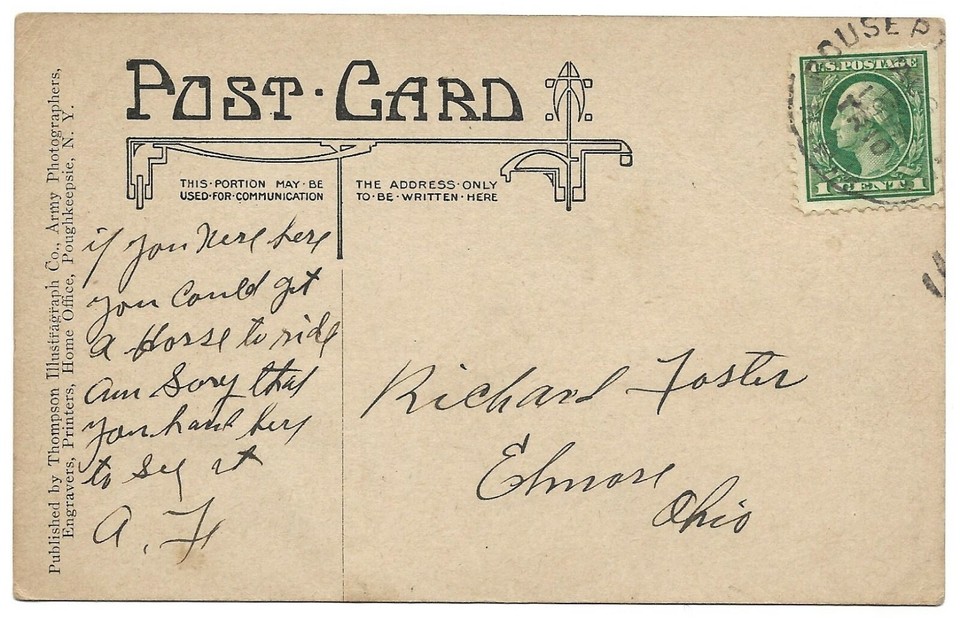 POST·CARD
THIS·PORTION MAY·BE
USED·FOR·COMMUNICATION
THE ADDRESS·ONLY
TO·BE·WRITTEN·HERE
U.S. POSTAGE
1 CENTS 1
if you were here
you could get
a Horse to ride
am Sory that
you hant hery
to Sey it
A. F
Richard Foster
Elmore
Ohio
Published by Thompson Illustragraph Co., Army Photographers,
Engravers, Printers, Home Office, Poughkeepsie, N. Y.